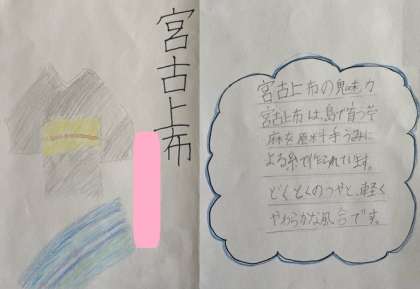 宮古上布
宮古上布の魅力
宮古上布は、島で育つ苧
麻を原料手うみに
よる糸で作られています。
どくとくのつやと、軽く
やわらかな風合です。